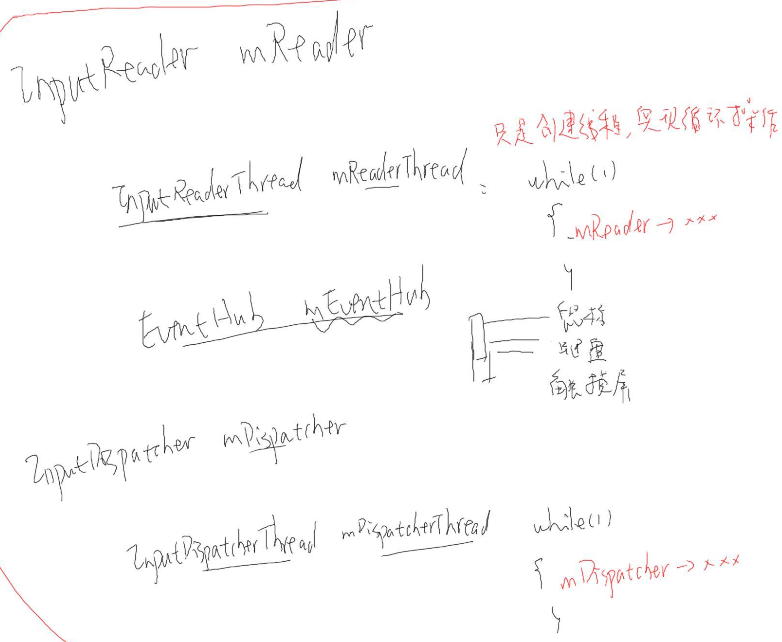 InputReader mReader
只是创建线程,实现循环操作
InputReaderThread mReaderThread : while(1)
{ mReader → xxx
}
EventHub mEventHub
鼠标
键盘
触摸屏
InputDispatcher mDispatcher
InputDispatcherThread mDispatcherThread while(1)
{ mDispatcher → xxx
}